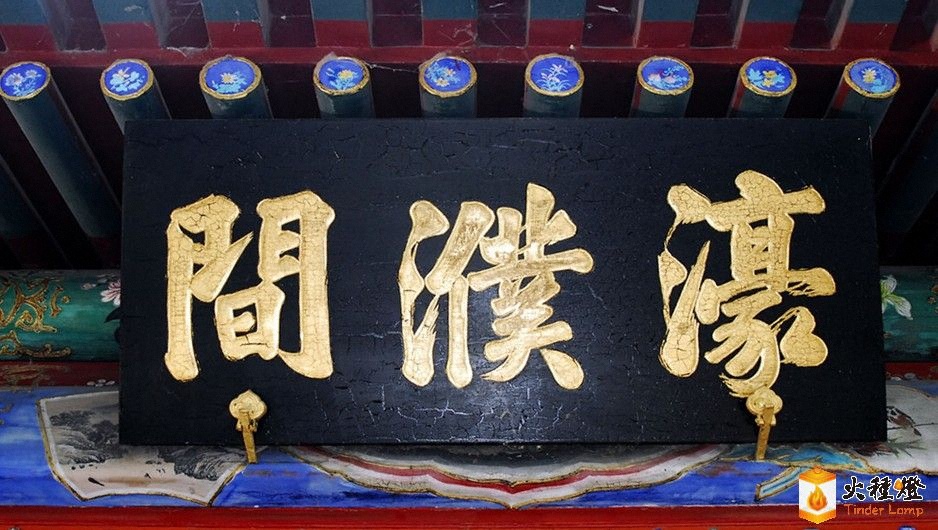 濠濮間
火種燈
Tinder Lamp